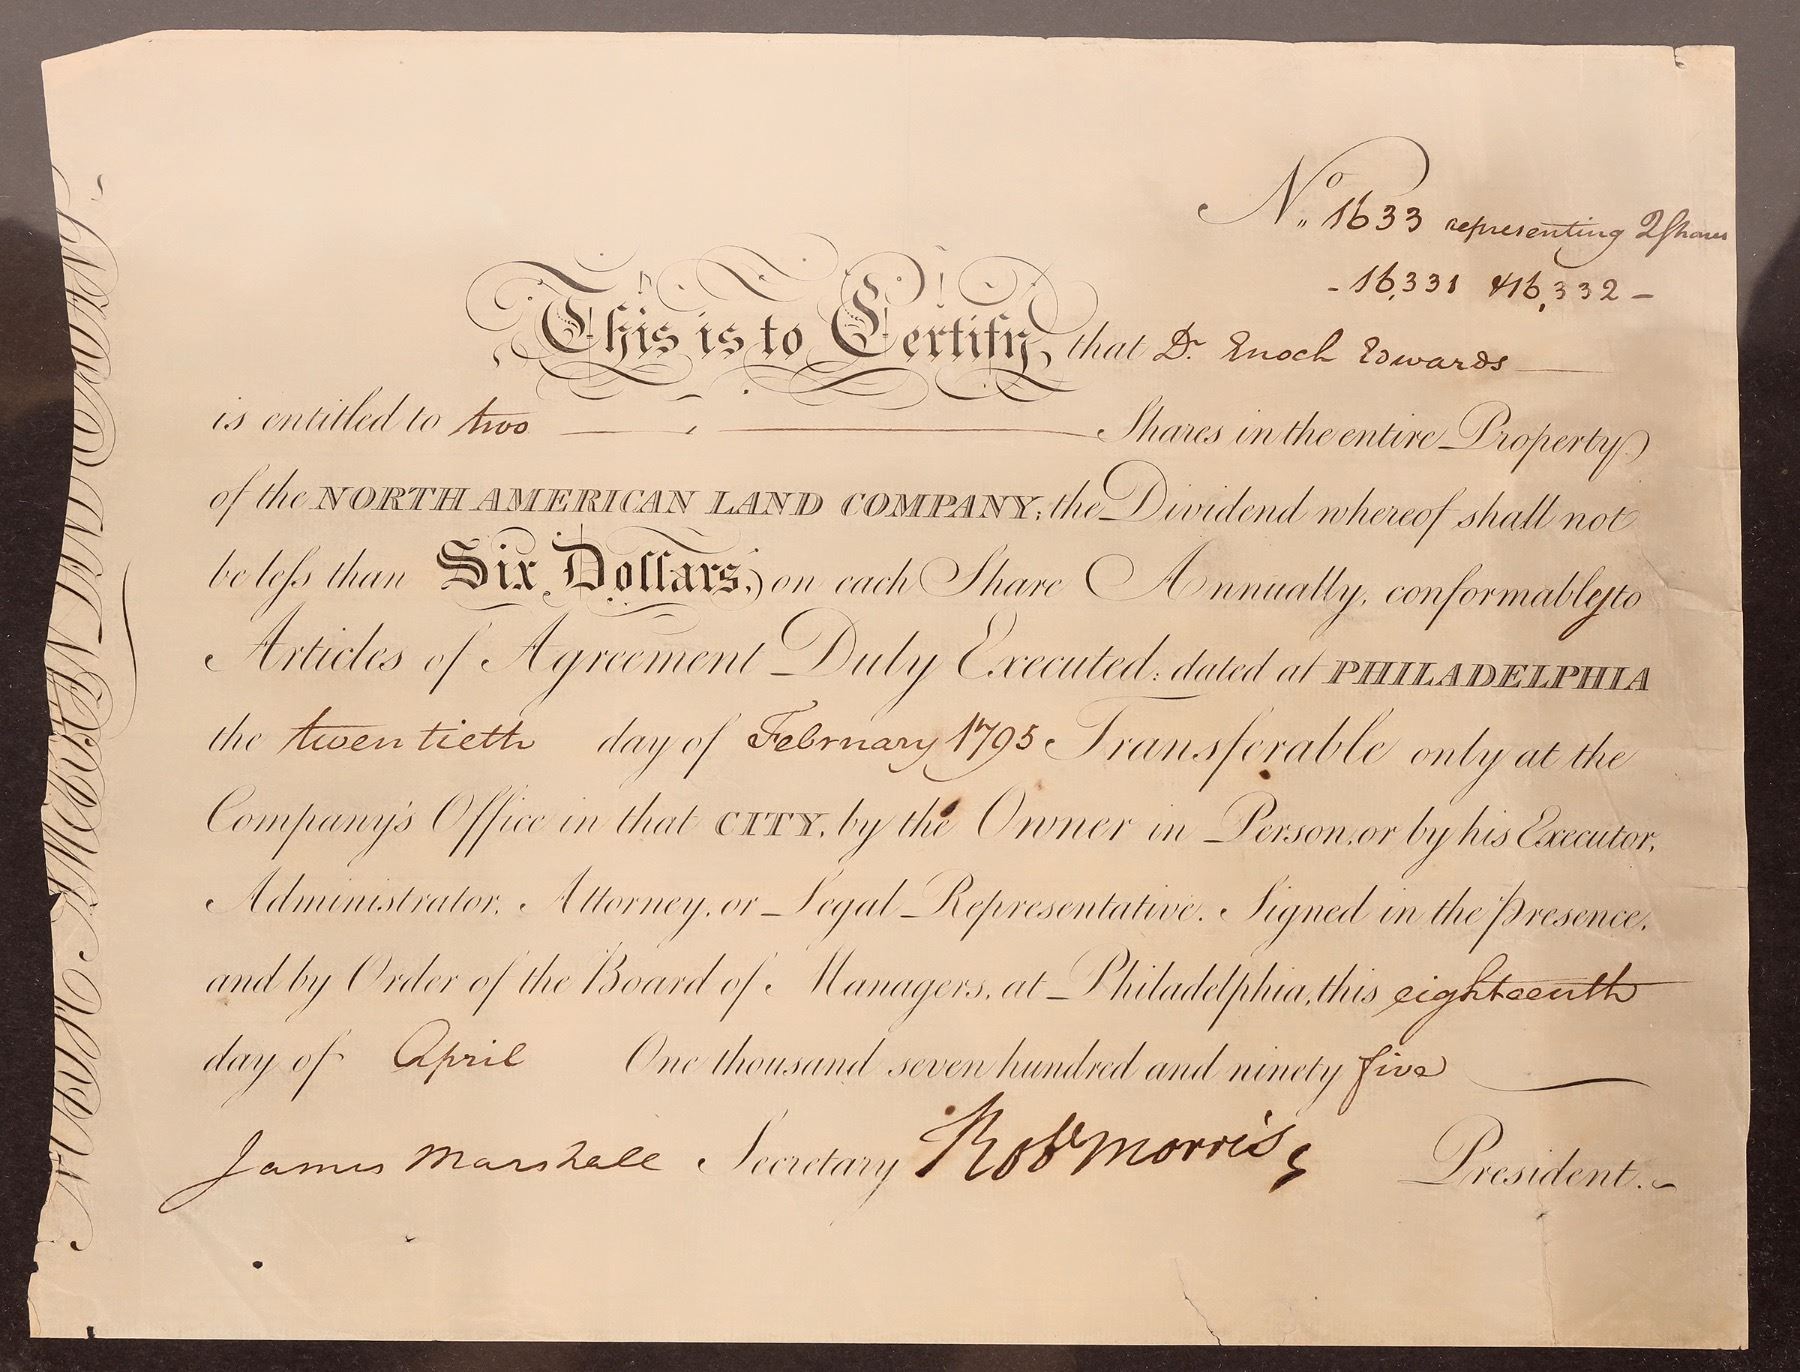 No. 1633 representing 2 Shares
- 16,331 & 16,332 -
This is to Certify, that Dr. Enoch Edwards
is entitled to two Shares in the entire Property
of the NORTH AMERICAN LAND COMPANY; the Dividend whereof shall not
be less than Six Dollars, on each Share Annually, conformably to
Articles of Agreement Duly Executed: dated at PHILADELPHIA
the twentieth day of February 1795 Transferable only at the
Company's Office in that CITY, by the Owner in Person, or by his Executor,
Administrator, Attorney, or Legal Representative. Signed in the presence,
and by Order of the Board of Managers, at Philadelphia, this eighteenth
day of April One thousand seven hundred and ninety five
James Marshall Secretary Robt Morris President.
NORTH AMERICAN LAND COMPANY